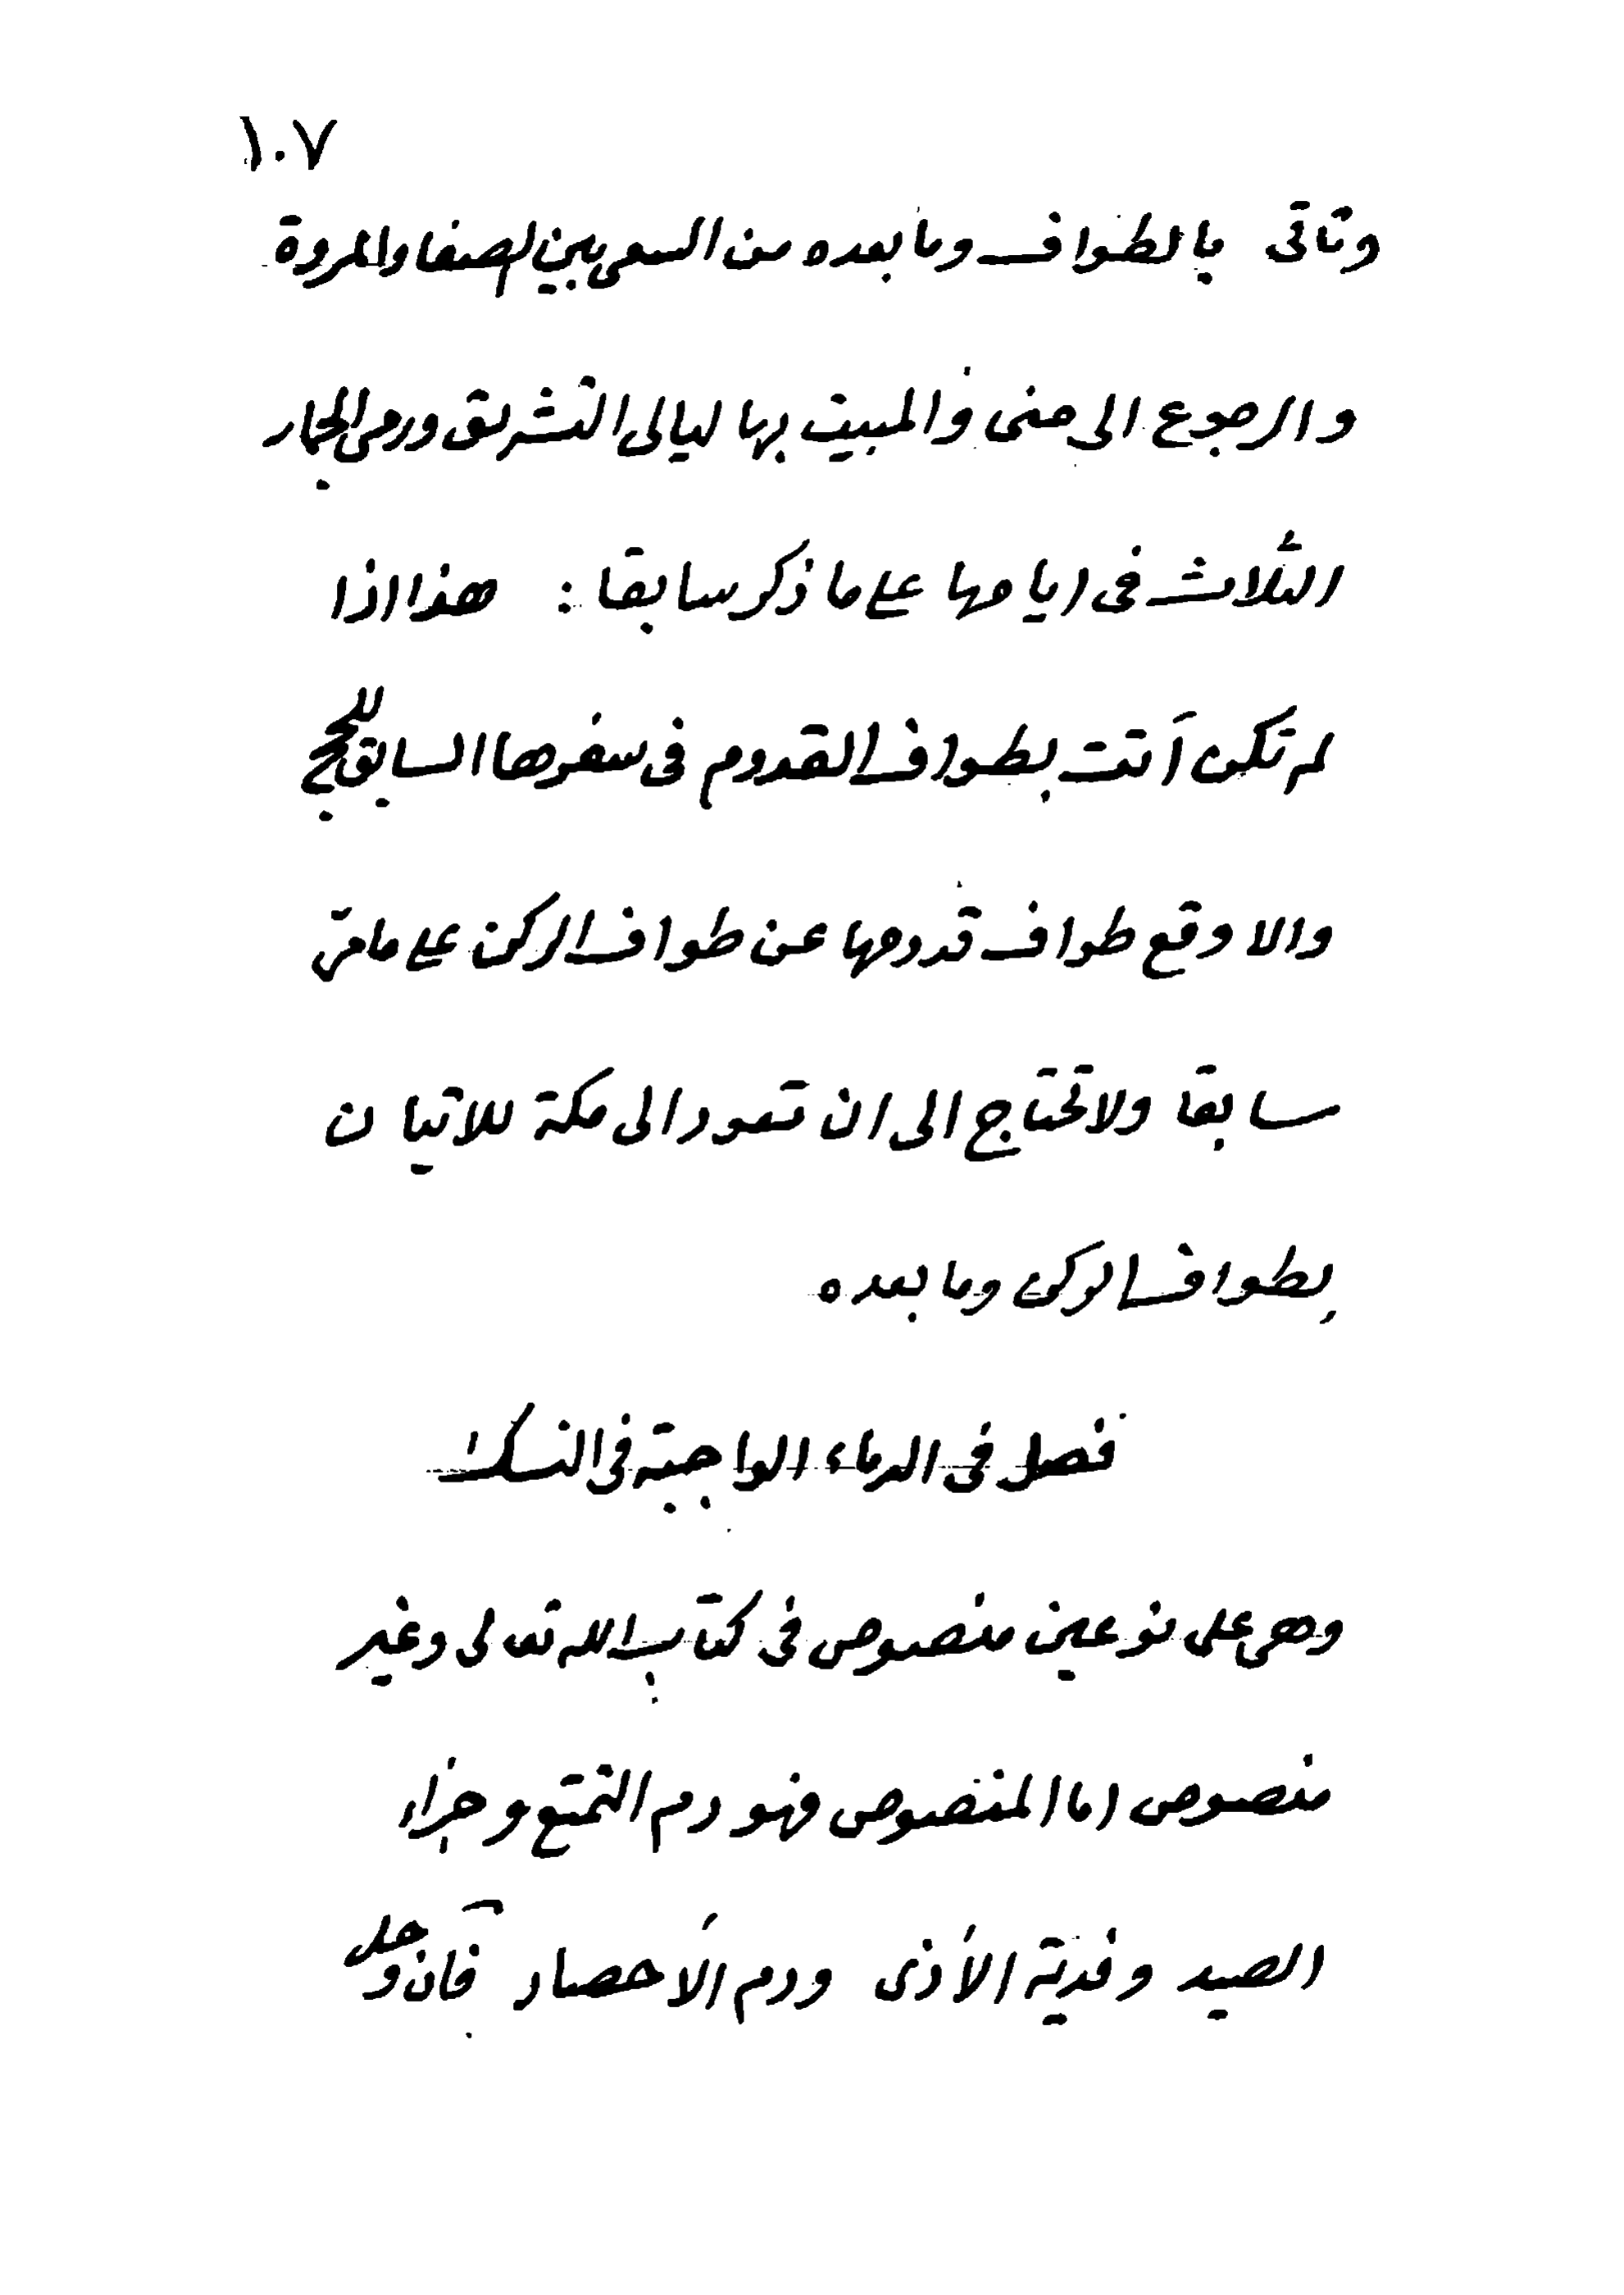 ١٠٧
وتاتى بالطواف وما بعده من السعى بين الصفا والمروة
والرجوع الى منى والمبيت بها ليالى التشريق ورمى الجمار
الثلاث فى ايامها على ما ذكر سابقا : هذا اذا
لم تكن أتت بطواف القدوم فى سفرها السابق للحج
والا وقع طواف قدومها عن طواف الركن على ما مرّ
سابقا ولا تحتاج الى ان تعود الى مكة للاتيان
بطواف الركن وما بعده
فصل فى الدماء الواجبة فى النسك
وهى على نوعين منصوص فى كتاب الله تعالى وغير
منصوص اما المنصوص فهو دم التمتع وجزاء
الصيد وفدية الأذى ودم الأحصار قآن وحل